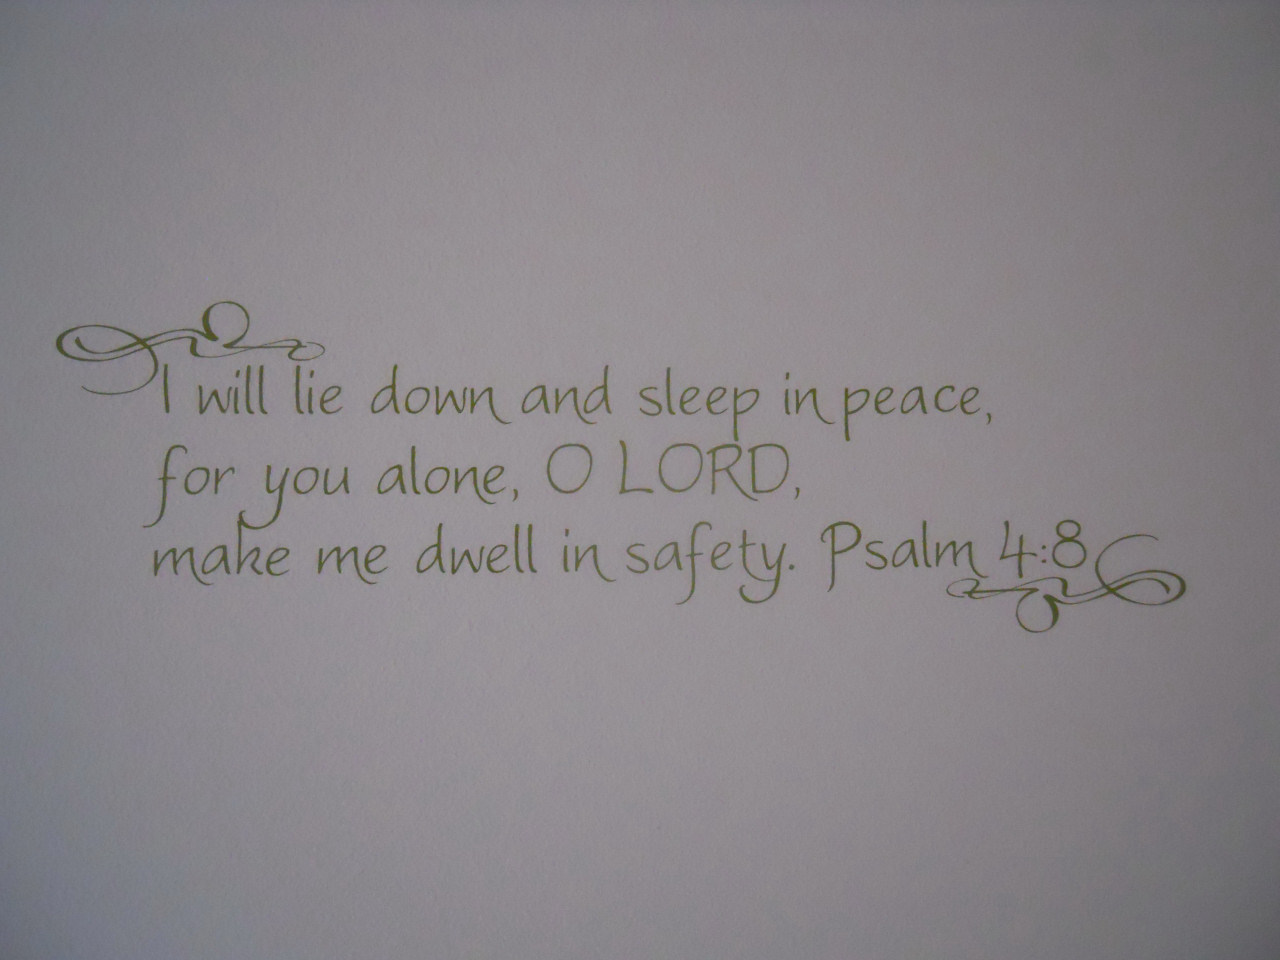 I will lie down and sleep in peace,
for you alone, O LORD,
make me dwell in safety. Psalm 4:8